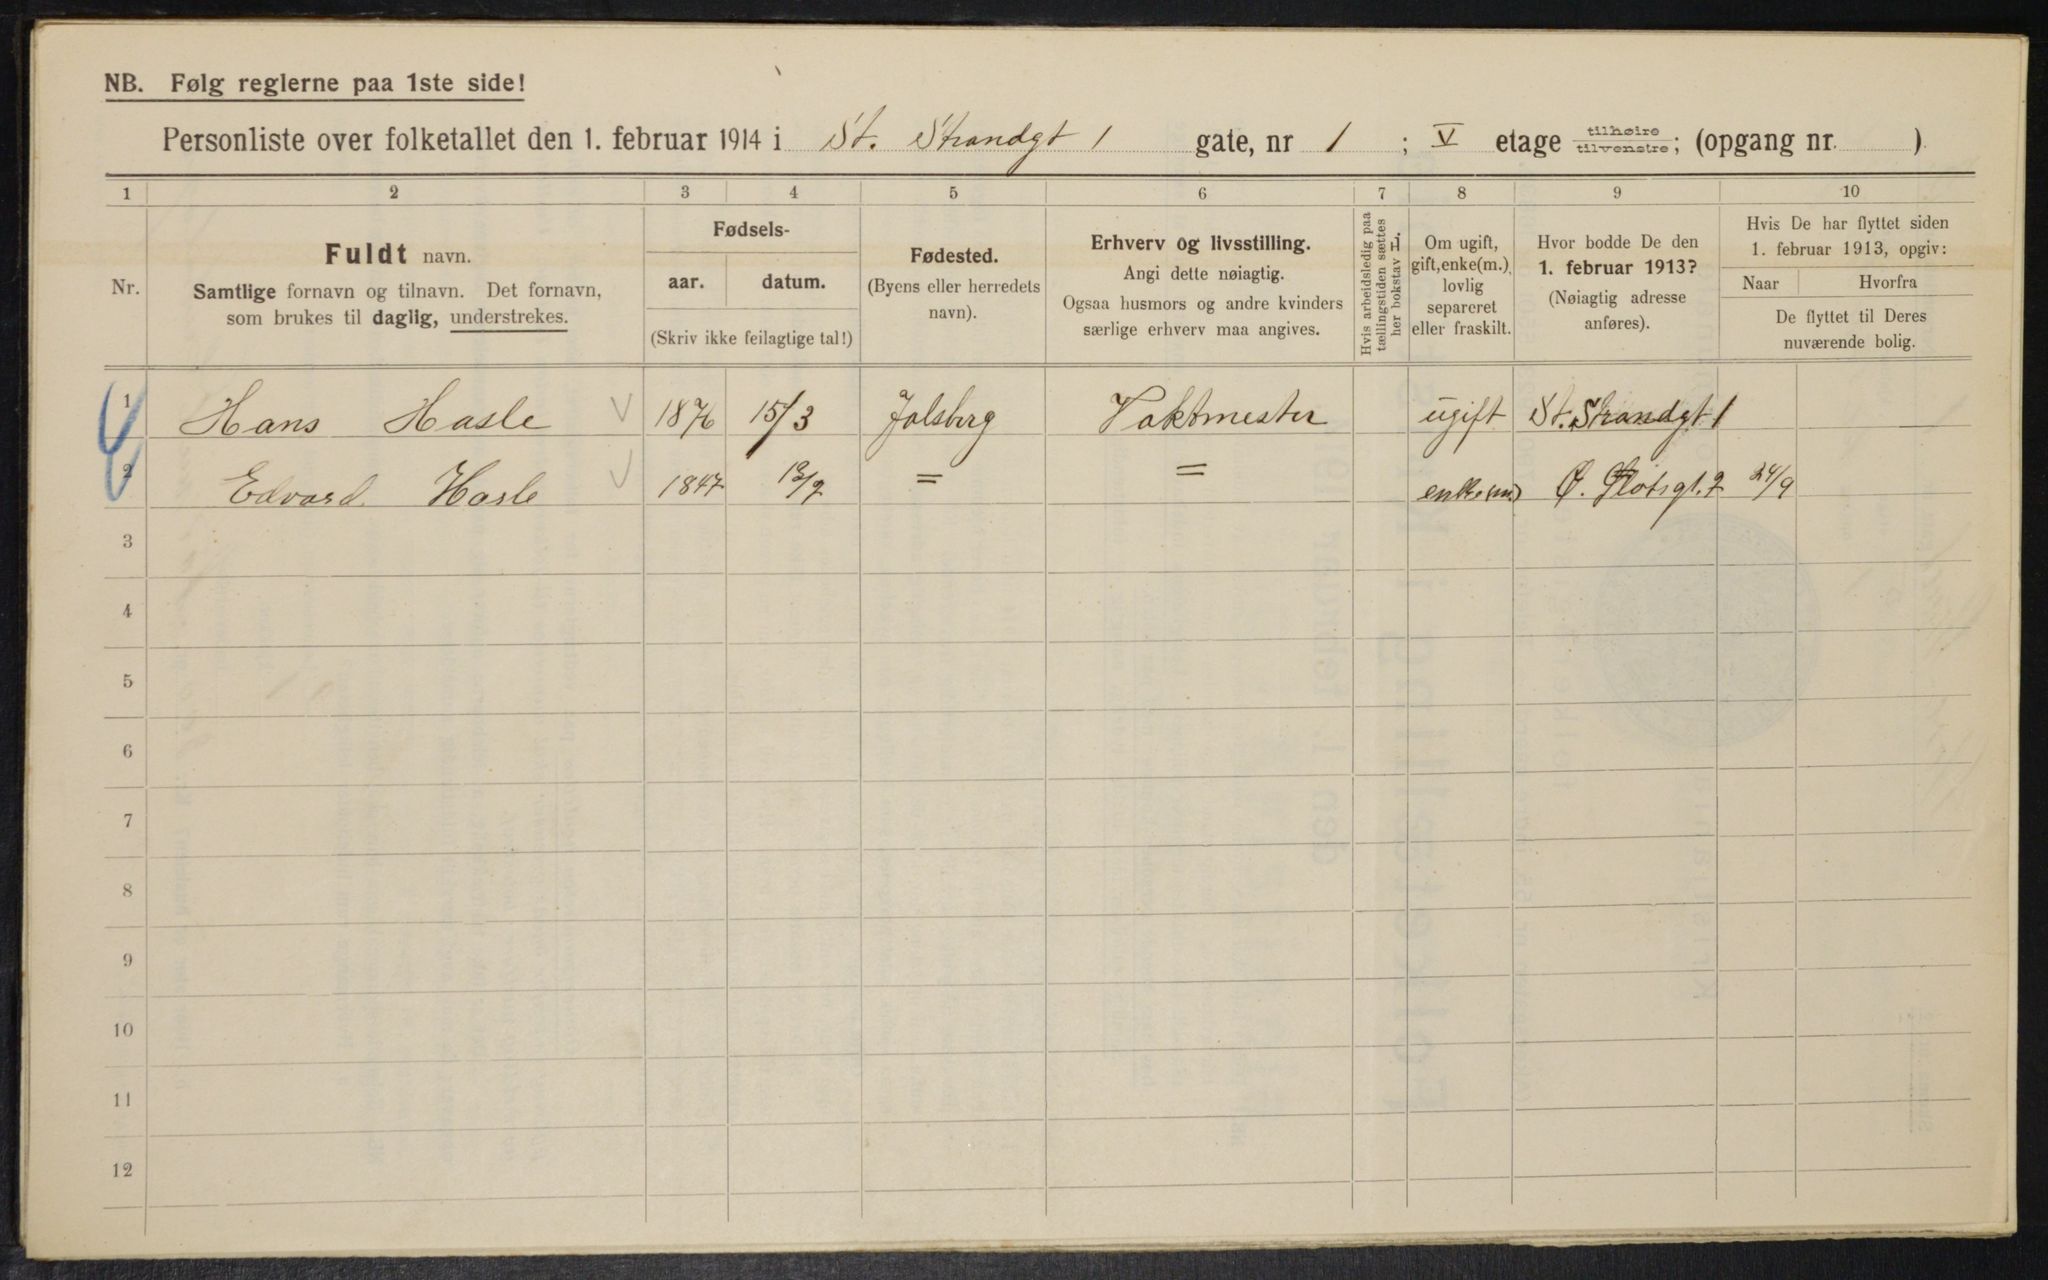 NB. Følg reglerne paa 1ste side!
Personliste over folketallet den 1. februar 1914 i St. Strandgt 1 gate, nr 1 ; V etage tilhøire / tilvenstre; (opgang nr. )
1 2 3 4 5 6 7 8 9 10
Nr.
Fuldt navn.
Samtlige fornavn og tilnavn. Det fornavn,
som brukes til daglig, understrekes.
Fødsels-
aar. datum.
(Skriv ikke feilagtige tal!)
Fødested.
(Byens eller herredets
navn).
Erhverv og livsstilling.
Angi dette nøiagtig.
Ogsaa husmors og andre kvinders
særlige erhverv maa angives.
Hvis arbeidsledig paa
tællingstiden sættes
her bokstav L.
Om ugift,
gift, enke(m.),
lovlig
separeret
eller fraskilt.
Hvor bodde De den
1. februar 1913?
(Nøiagtig adresse
anføres).
Hvis De har flyttet siden
1. februar 1913, opgiv:
Naar Hvorfra
De flyttet til Deres
nuværende bolig.
1 Hans Hasle 1876 15/3 Jalsberg Vaktmester ugift St. Strandgt 1
2 Edvard Hasle 1847 = = enke(m) Ø. Slotsgt. 2 24/9
3
4
5
6
7
8
9
10
11
12